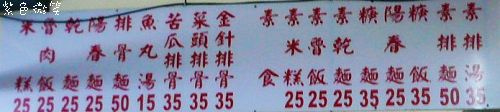 紫色微笑
米糕 25
魯肉飯 25
乾麵 25
陽春麵 25
排骨麵 50
魚丸湯 15
苦瓜排骨 35
菜頭排骨 35
金針排骨 35
素食
素米糕 25
素魯飯 25
素乾麵 25
麵 35
陽春麵 25
飯 35
素排麵 50
素排湯 35